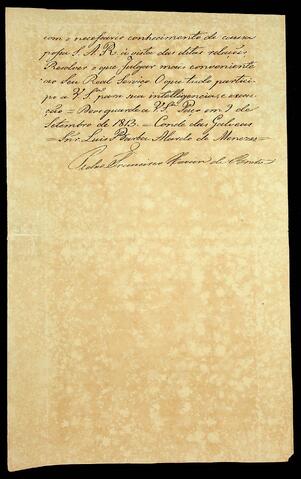 com o necessario conhecimento de causa
possa S. A. R. á vista das ditas relaçoẽs
Resolver o que julgar mais conveniente
ao Seu Real Serviço. O que tudo partici-
po a V. Sª. para sua intelligencia, e execu-
ção = Deos guarde a V. Sª. Paço em 9 de
Setembro de 1813. = Conde das Galveas
= Snr. Luis Barba Alardo de Menezes =
Pedro Francisco Xavier de